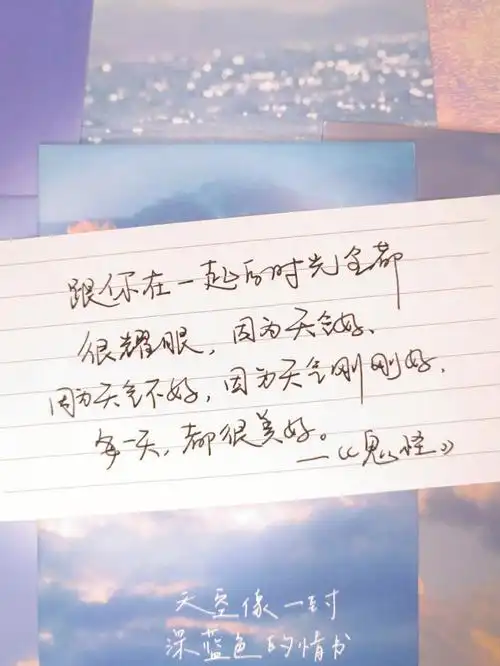 跟你在一起的时光全都
很耀眼，因为天气好、
因为天气不好，因为天气刚刚好．
每一天，都很美好。
—《鬼怪》
天空像一封
深蓝色的情书